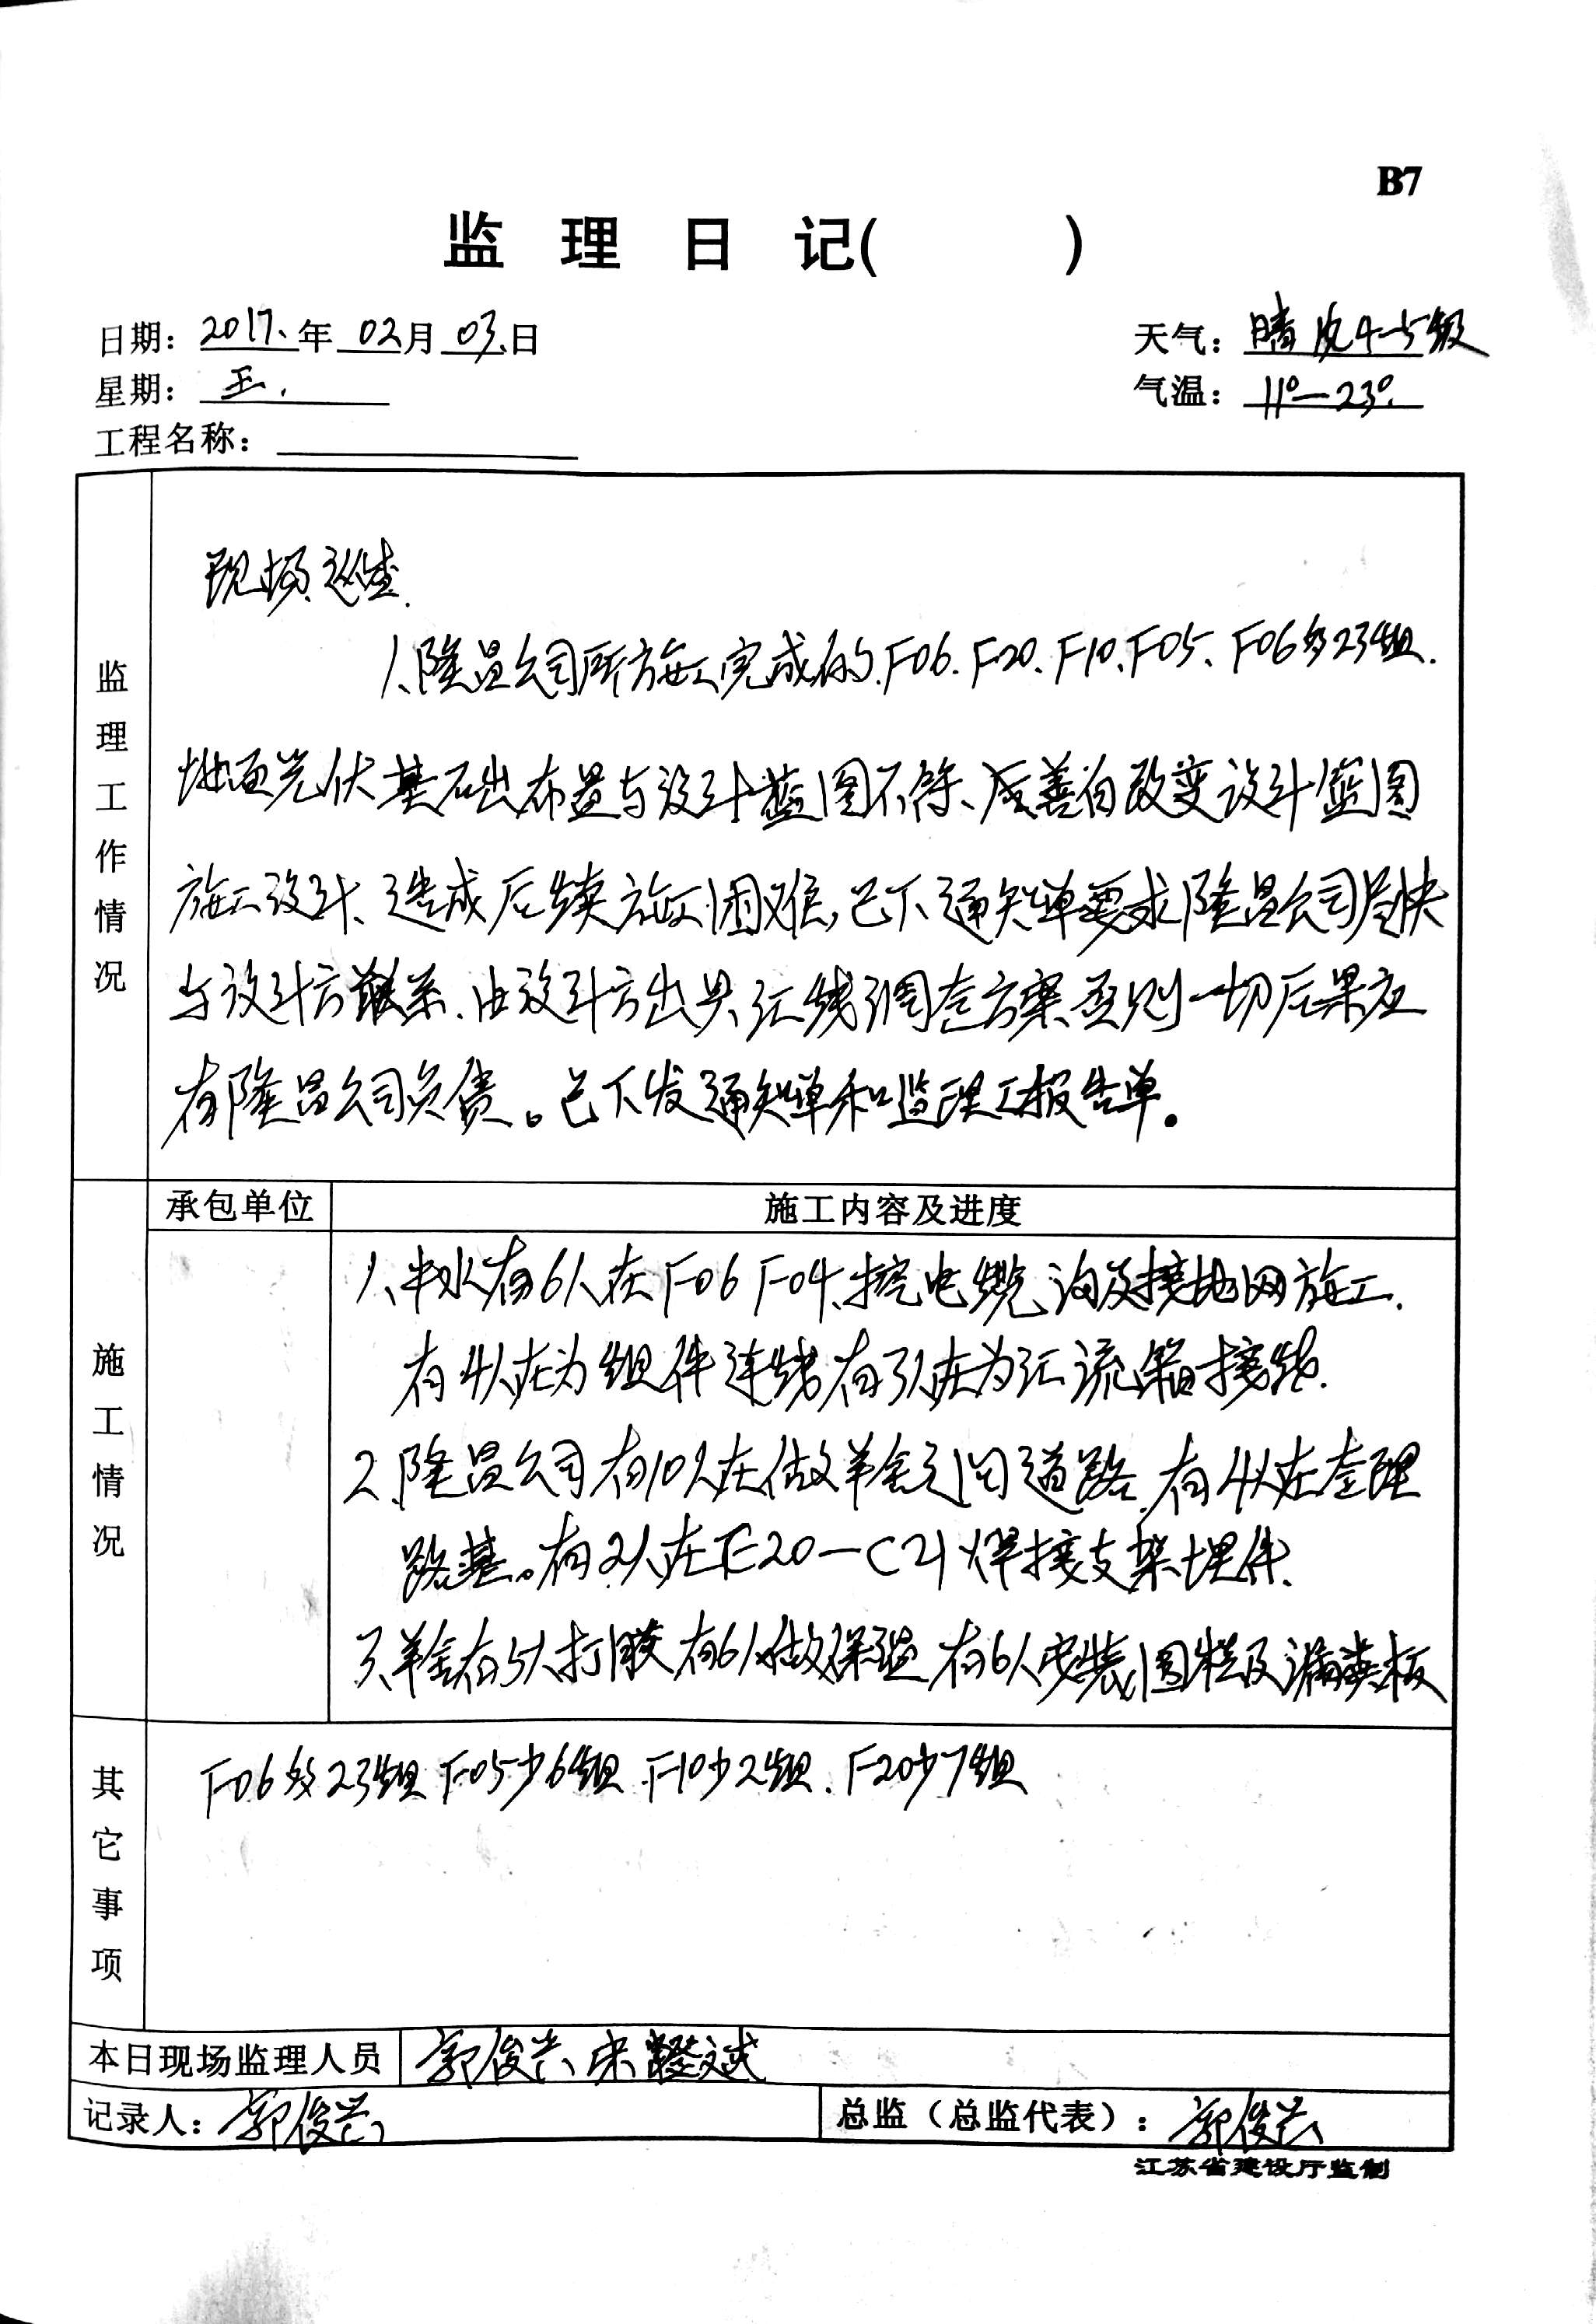 B7
监 理 日 记( )
日期: 2017、年 02月 03、日
天气: 晴 风4-5级
星期: 五.
气温: 11°—23°.
工程名称:
监理工作情况
现场巡查.
1、隆昌公司所施工完成的.F06.F20、F10、F05、F06多23组.
地面光伏基础布置与设计蓝图不符、善自改变设计蓝图
施工设计、造成后续施工困难,已下通知单要求隆昌公司尽快
与设计方联系.由设计方出具汇线调查方案否则一切后果应
有隆昌公司负责。已下发通知单和监理工报告单。
承包单位 施工内容及进度
施工情况
1、中水有6人在F06 F04、挖电缆沟及接地网施工.
有4人在为组件连线有3人在为汇流箱接线.
2、隆昌公司有10人在做羊舍之间道路.有4人在整理
路基。有2人在E20—C21焊接支架埋件.
3、羊舍有5人打胶有6人做保温有6人安装围栏及漏粪板
其它事项
F06多23组 F05少6组.F10少2组.F20少7组
本日现场监理人员 郭俊兴 宋 斌
记录人: 郭俊兴
总监(总监代表): 郭俊兴
江苏省建设厅监制